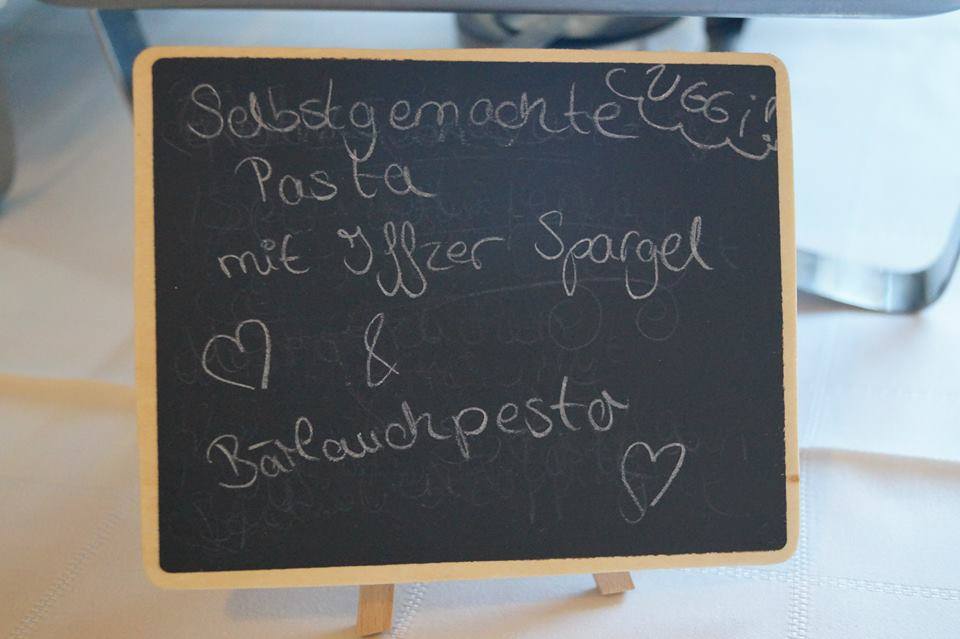 Selbstgemachte
VEGGi!
Pasta
mit Iffzer Spargel
&
Bärlauchpesto